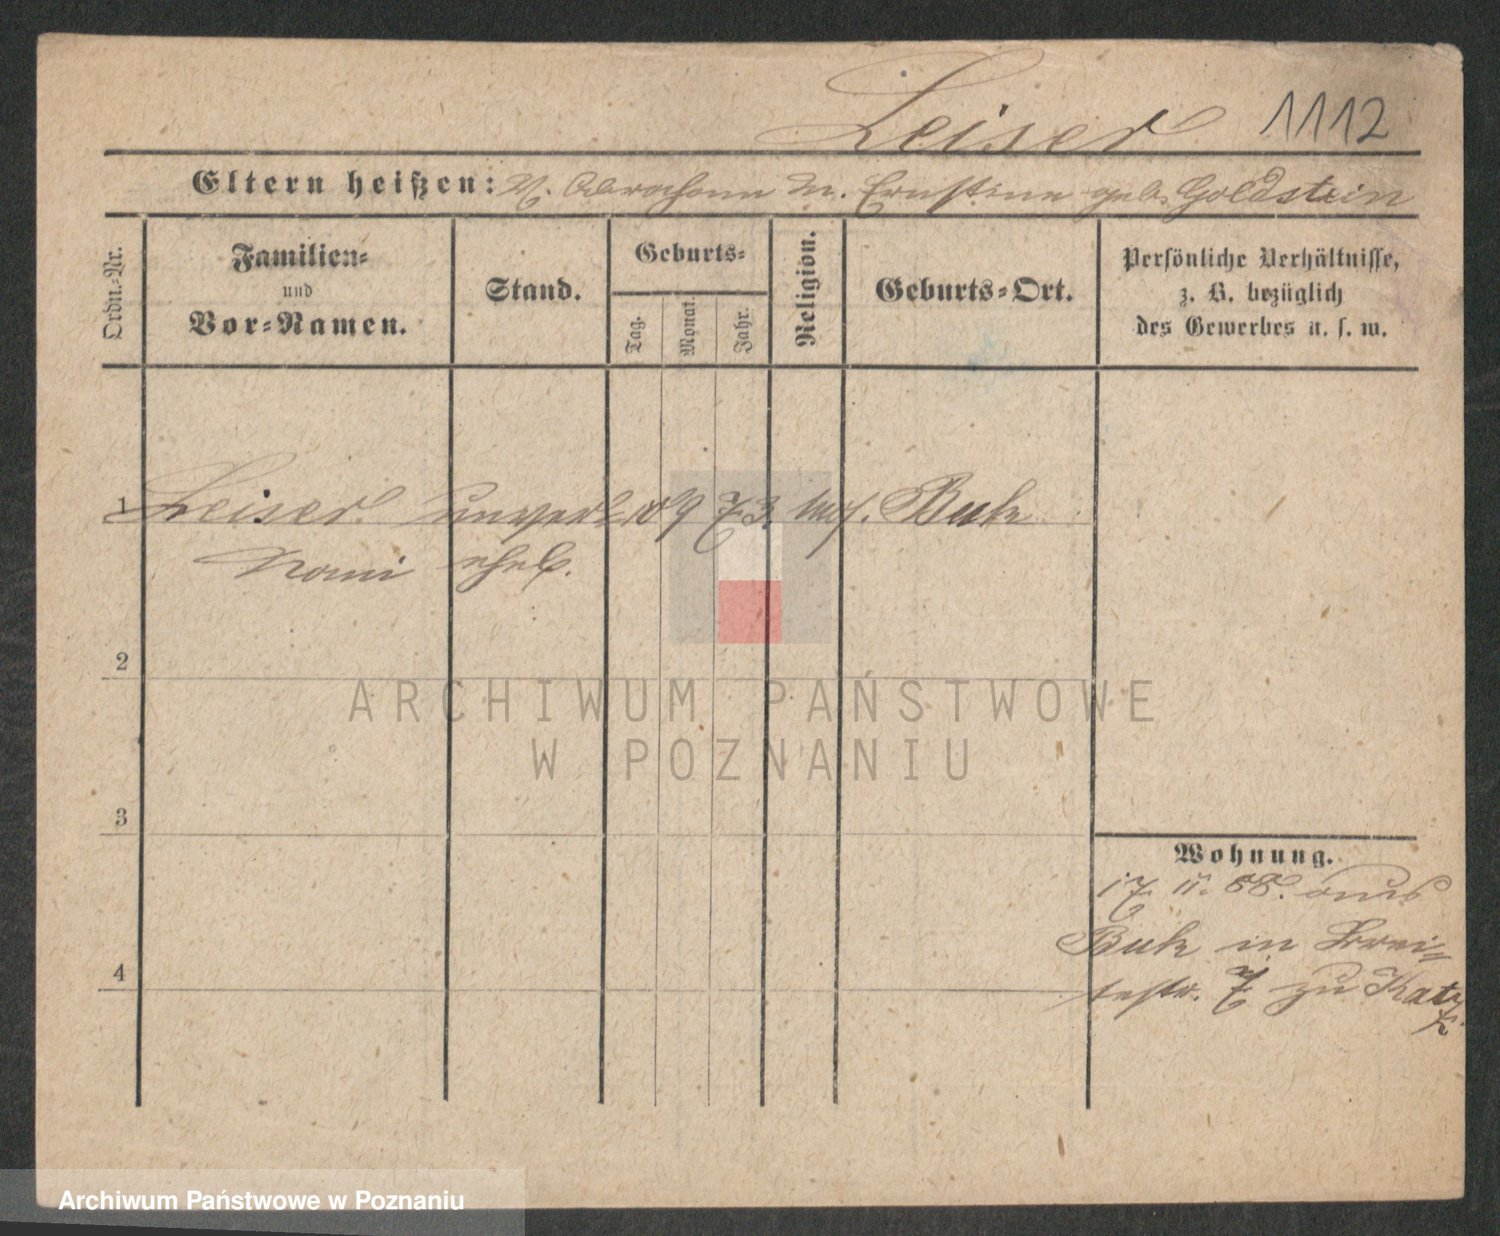 Leiser 1112
Eltern heißen: V. Abraham M. Ernstine geb. Goldstein
Ordn.-Nr.
Familien-
und
Vor-Namen.
Stand.
Geburts-
Tag.
Monat.
Jahr.
Religion.
Geburts-Ort.
Persönliche Verhältnisse,
z. B. bezüglich
des Gewerbes u. s. w.
1 Leiser unver 9 73. mos. Buk
Nomi ehel.
2
3
4
Wohnung.
17 11. 88. aus
Buk in Brei=
testr. 7 zu Katz
ARCHIWUM PAŃSTWOWE
W POZNANIU
Archiwum Państwowe w Poznaniu